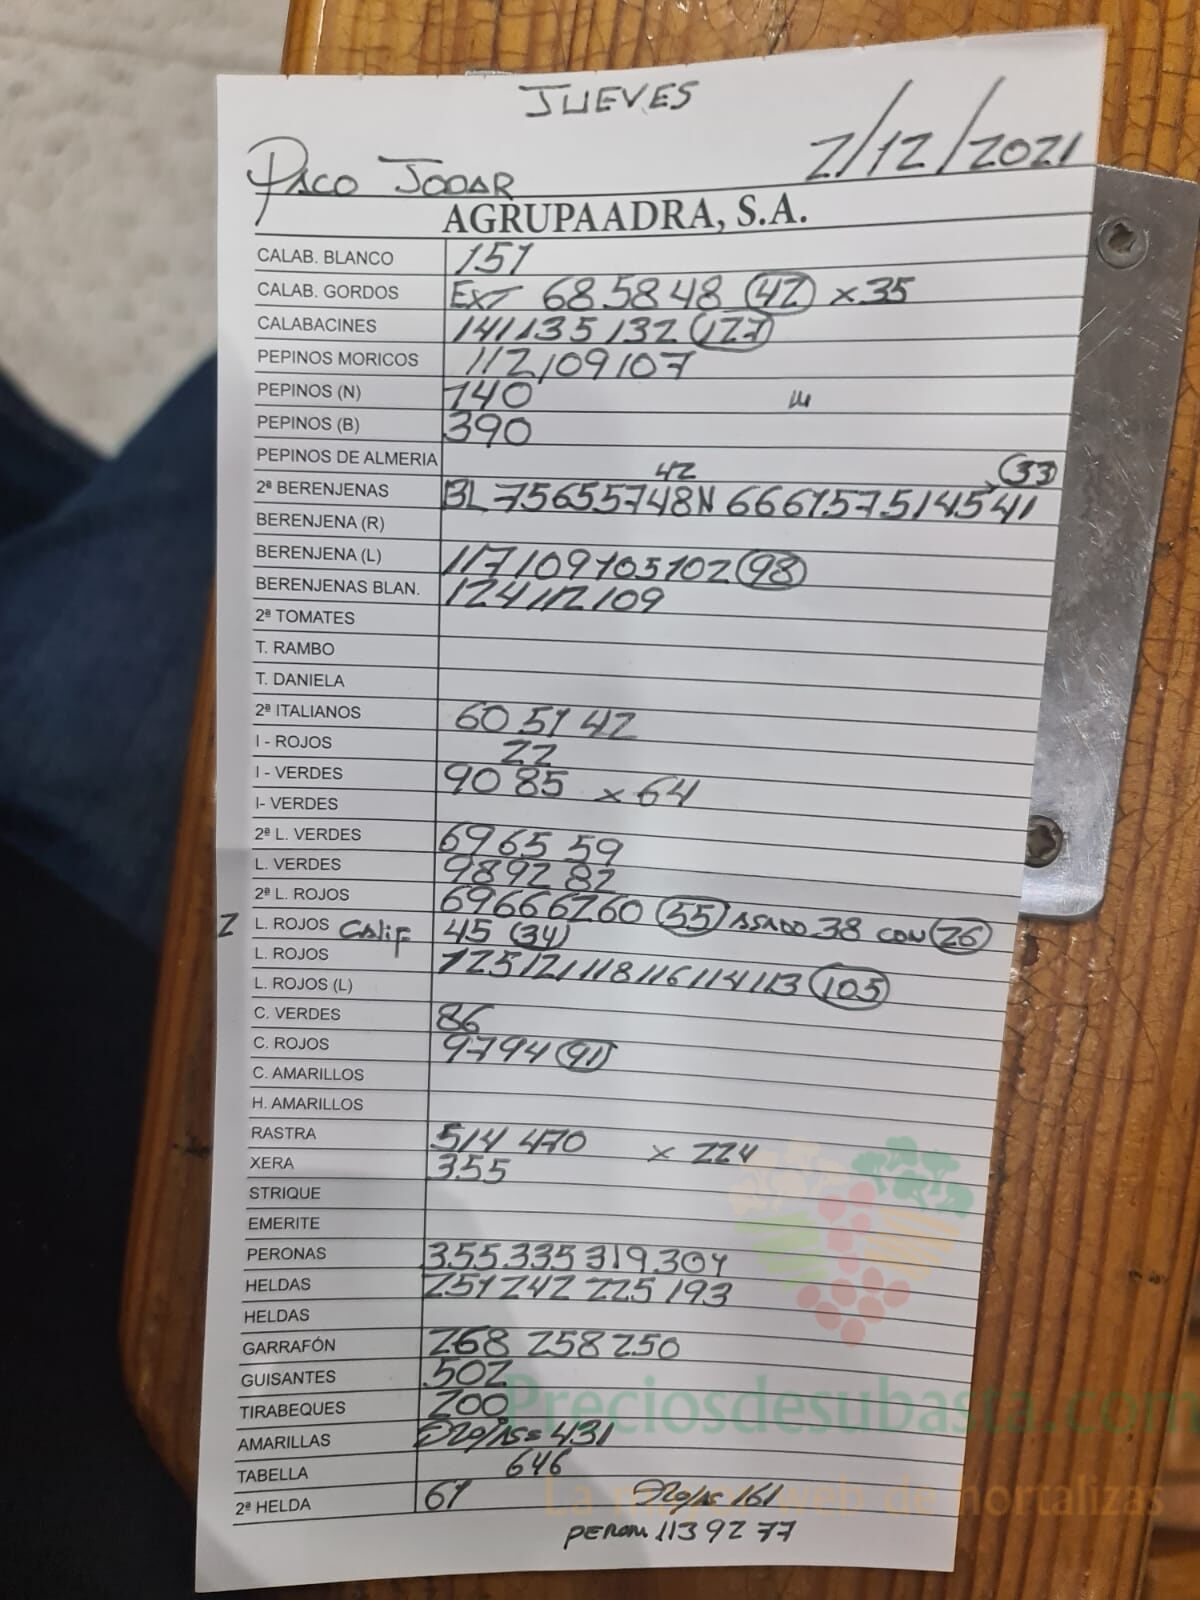 JUEVES
2/12/2021
PACO JODAR
AGRUPAADRA, S.A.
CALAB. BLANCO 151
CALAB. GORDOS EXT 68 58 48 42 x 35
CALABACINES 141 135 132 127
PEPINOS MORICOS 112 109 107
PEPINOS (N) 140
PEPINOS (B) 390
PEPINOS DE ALMERIA
42 33
2ª BERENJENAS BL 75 65 57 48 N 66 61 57 51 45 41
BERENJENA (R)
BERENJENA (L) 117 109 105 102 98
BERENJENAS BLAN. 124 112 109
2ª TOMATES
T. RAMBO
T. DANIELA
2ª ITALIANOS 60 51 42
I - ROJOS 22
I - VERDES 90 85 x 64
I- VERDES
2ª L. VERDES 69 65 59
L. VERDES 98 92 82
2ª L. ROJOS 69 66 62 60 55 ASADO 38 CON 26
2 L. ROJOS CALIF 45 (34)
L. ROJOS 125 121 118 116 114 113 105
L. ROJOS (L)
C. VERDES 86
C. ROJOS 97 94 91
C. AMARILLOS
H. AMARILLOS
RASTRA 514 470 x 224
XERA 355
STRIQUE
EMERITE
PERONAS 355 335 319 304
HELDAS 251 242 225 193
HELDAS
GARRAFÓN 268 258 250
GUISANTES 502
TIRABEQUES 200
Preciosdesubasta.com
AMARILLAS = 431
TABELLA 646
2ª HELDA 61 161
La mejor web de hortalizas
PERON 113 92 77